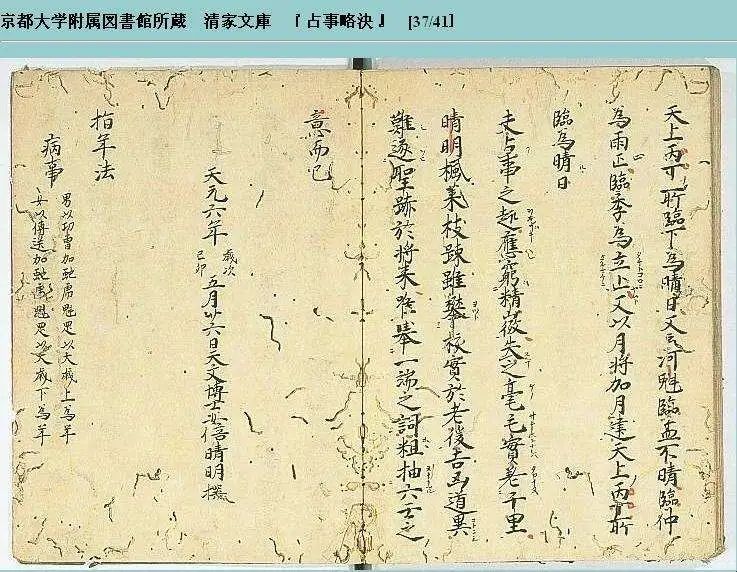 京都大学附属図書館所蔵 清家文庫 『占事略決』 [37/41]
天上丙丁所臨下為晴日又云河魁臨孟不晴臨仲
為雨止臨季為立止又以月将加月建天上丙丁所
臨為晴日
夫占事之趣應窮精微失之毫毛實差千里
晴明楓葉枝踈雖擎核實於老後吉凶道異
難逐聖跡於将来唯舉一端之詞粗抽六壬之
意而已
天元六年 歳次己卯 五月廿六日天文博士安倍晴明撰
指年法
病事
男以功曹加
女以傳送加